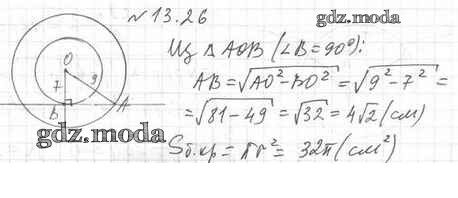 №13.26
gdz.moda
Из △ AOB (∠B=90°):
AB = √AO²-BO² = √9²-7² =
= √81-49 = √32 = 4√2 (см)
Sб.кр = πr² = 32π (см²)
O
7 9
B A
gdz.moda